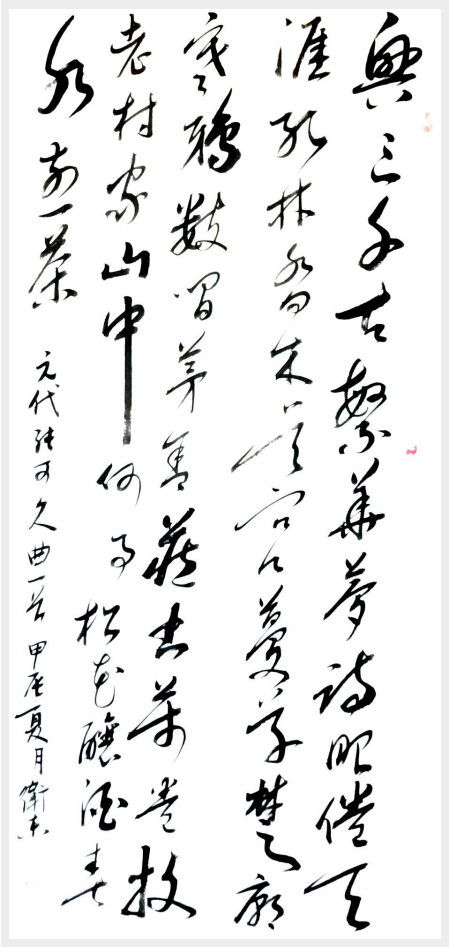 興亡千古繁華夢詩眼倦天
涯孔林喬木吳宮蔓草楚廟
寒鴉數間茅舍藏書萬卷投
老村家山中何事松花釀酒春
水煎茶
元代張可久曲一首甲辰夏月衛東